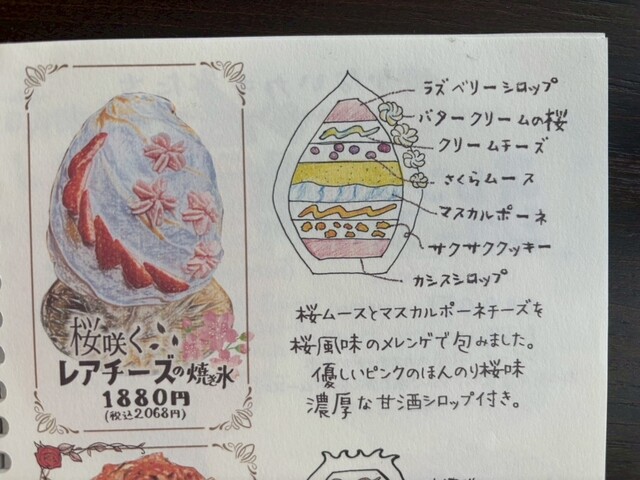 桜咲く
レアチーズの焼き氷
1880円
(税込2.068円)
ラズベリーシロップ
バタークリームの桜
クリームチーズ
さくらムース
マスカルポーネ
サクサククッキー
カシスシロップ
桜ムースとマスカルポーネチーズを
桜風味のメレンゲで包みました。
優しいピンクのほんのり桜味
濃厚な甘酒シロップ付き。